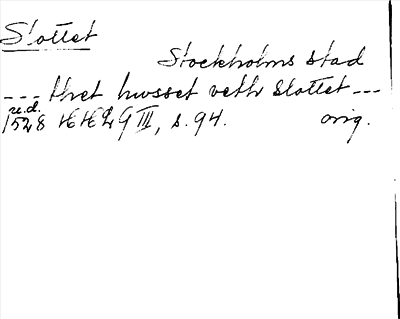 Slottet
Stockholms stad
--- thet hwsset veth Slottet ---
u.d.
1528 HH2G III, s. 94. orig.